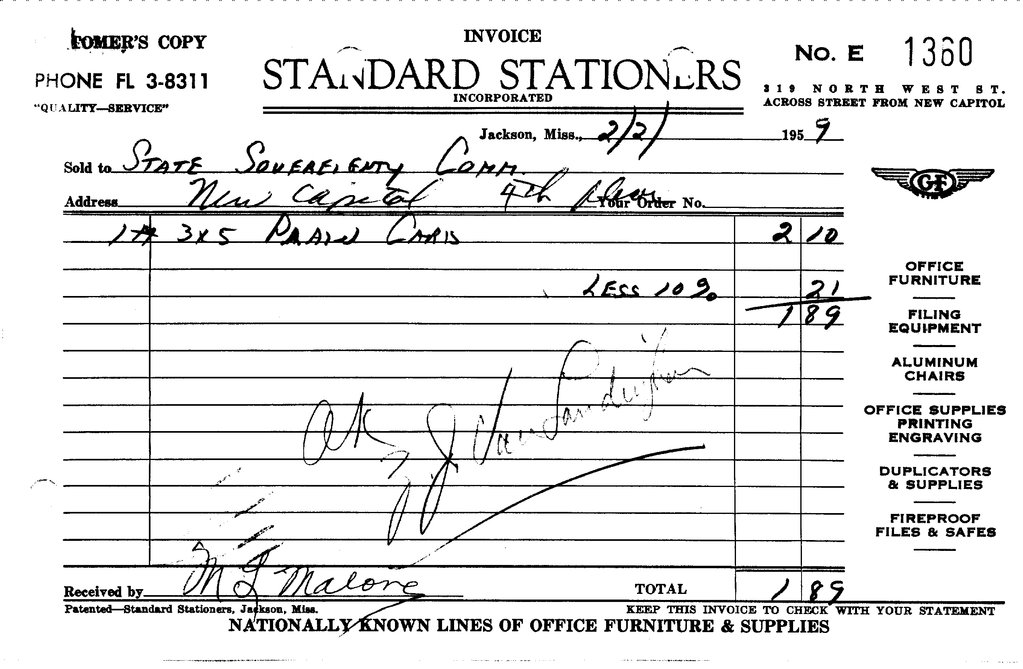 INVOICE
TOMER'S COPY
No. E 1360
PHONE FL 3-8311
STANDARD STATIONERS
"QUALITY—SERVICE"
INCORPORATED
319 NORTH WEST ST.
ACROSS STREET FROM NEW CAPITOL
Jackson, Miss., 2/2/ 1959
Sold to STATE SOVEREIGNTY COMM.
Address New Capitol 4th floor Your Order No.
GF
1 M 3x5 PLAIN CARDS 2 10
LESS 10% 21
1 89
OFFICE
FURNITURE
FILING
EQUIPMENT
ALUMINUM
CHAIRS
OFFICE SUPPLIES
PRINTING
ENGRAVING
DUPLICATORS
& SUPPLIES
FIREPROOF
FILES & SAFES
OK
Z. J. Van Landingham
Received by M L Malone TOTAL 1 89
Patented—Standard Stationers, Jackson, Miss. KEEP THIS INVOICE TO CHECK WITH YOUR STATEMENT
NATIONALLY KNOWN LINES OF OFFICE FURNITURE & SUPPLIES